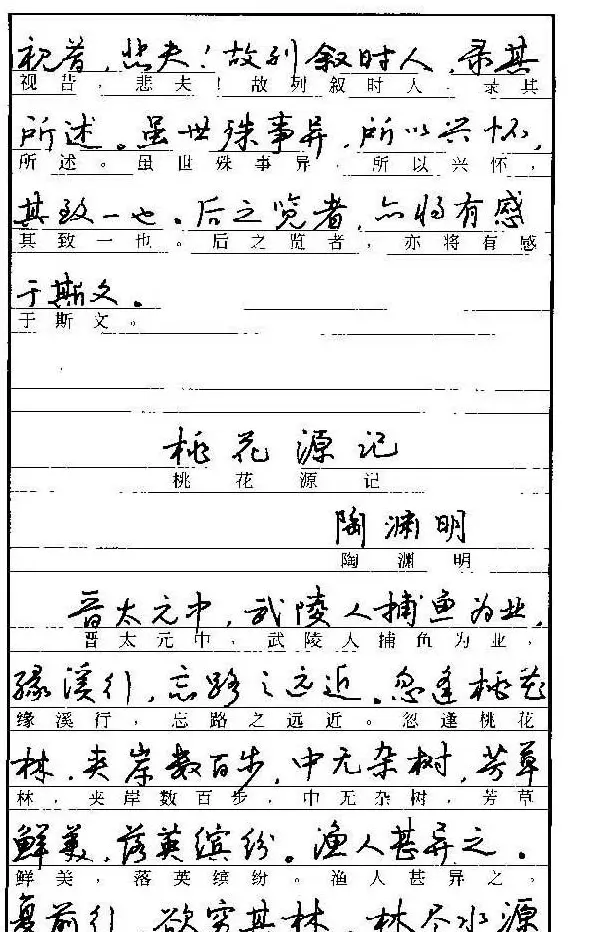 视昔，悲夫！故列叙时人，录其
视昔，悲夫！故列叙时人，录其
所述。虽世殊事异，所以兴怀，
所述。虽世殊事异，所以兴怀，
其致一也。后之览者，亦将有感
其致一也。后之览者，亦将有感
于斯文。
于斯文。
桃花源记
桃花源记
陶渊明
陶渊明
晋太元中，武陵人捕鱼为业，
晋太元中，武陵人捕鱼为业，
缘溪行，忘路之远近。忽逢桃花
缘溪行，忘路之远近。忽逢桃花
林，夹岸数百步，中无杂树，芳草
林，夹岸数百步，中无杂树，芳草
鲜美，落英缤纷。渔人甚异之。
鲜美，落英缤纷。渔人甚异之。
复前行，欲穷其林，林尽水源